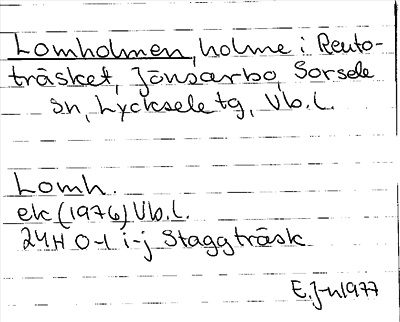 Lomholmen, holme i Reuto-
träsket, Jönsarbo, Sorsele
sn, Lycksele tg, Vb.l.
Lomh.
ek (1976) Vb.l.
24H 0-1 i-j Staggträsk
E.J-n 1977